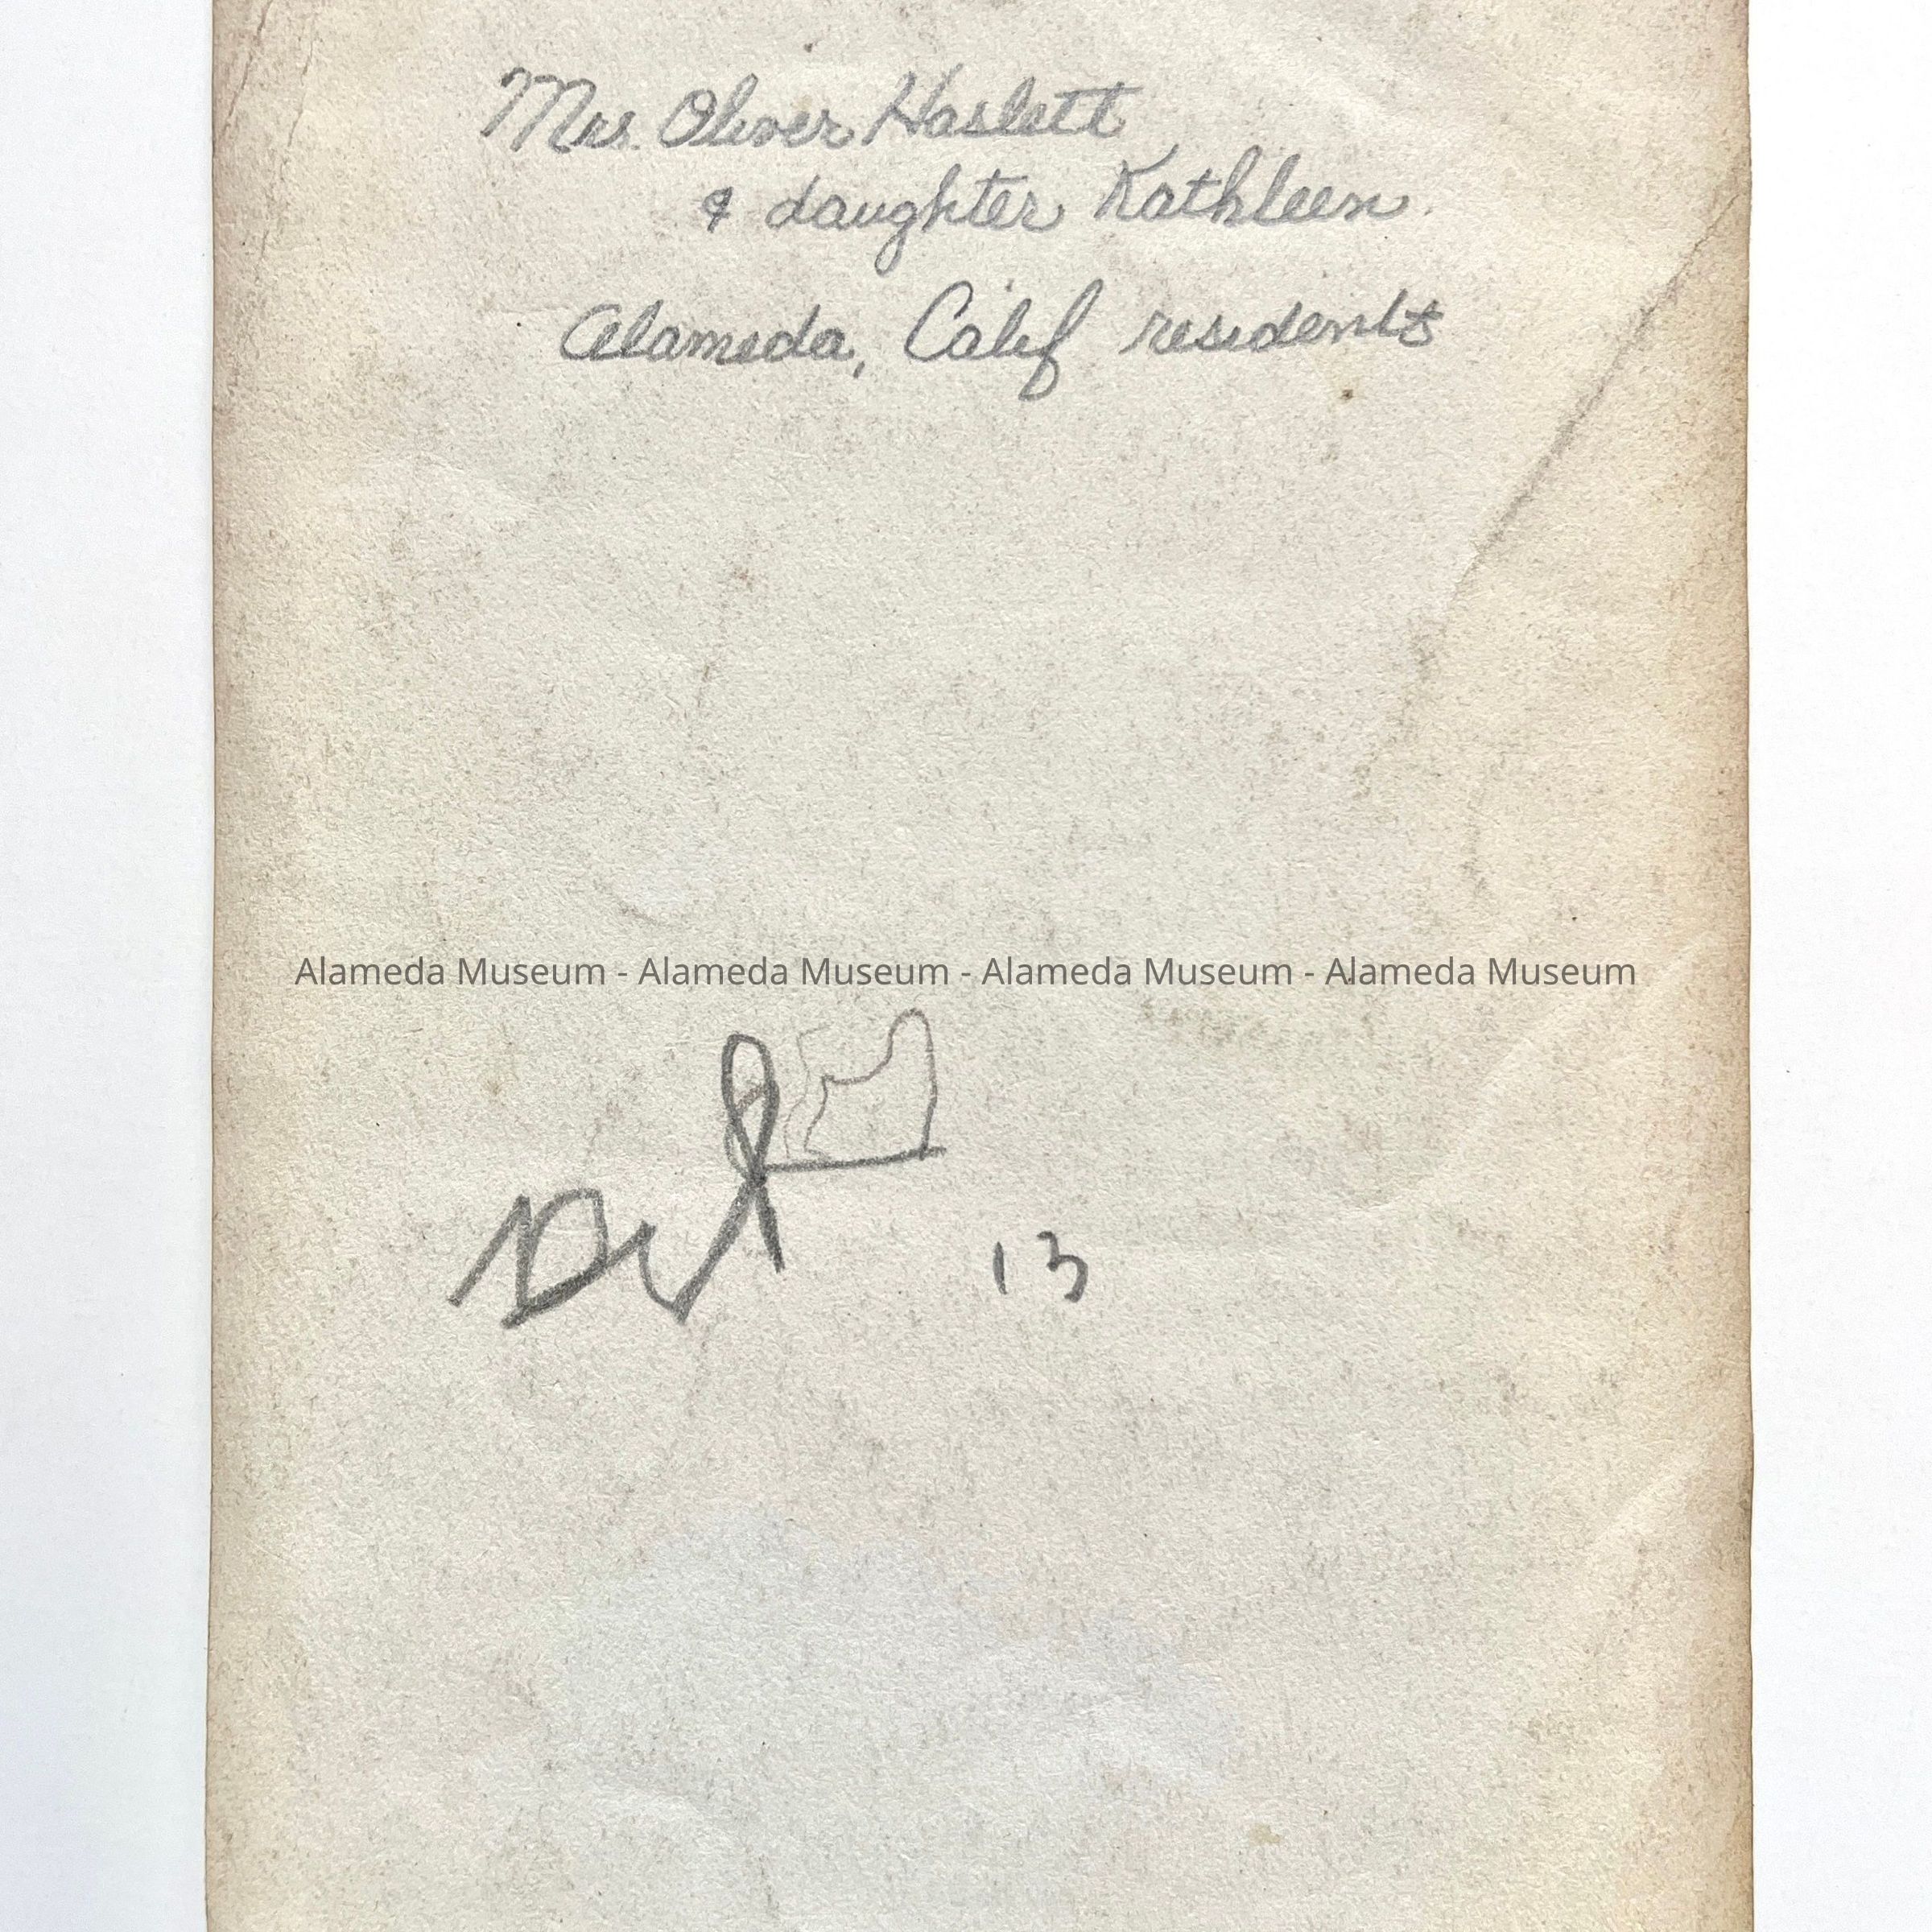 Mrs. Oliver Haslett
& daughter Kathleen
Alameda, Calif residents
Alameda Museum - Alameda Museum - Alameda Museum - Alameda Museum
13